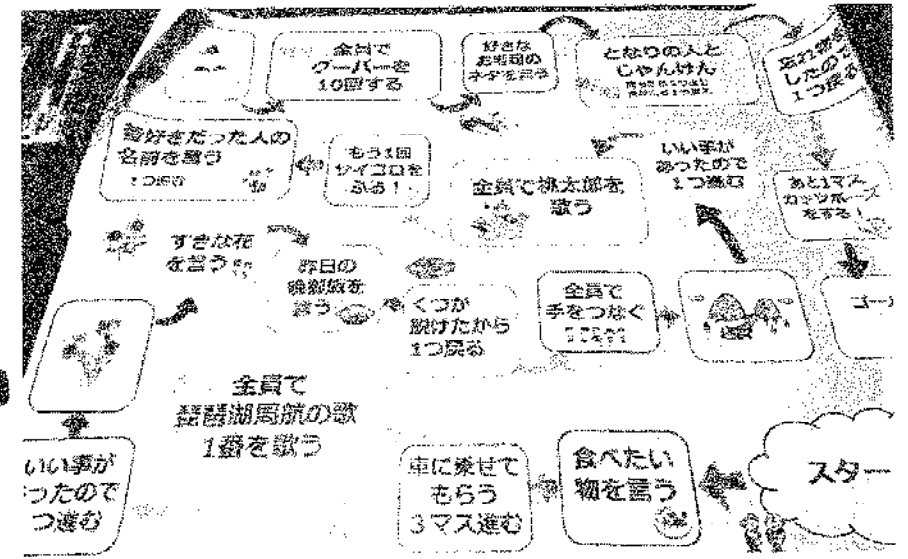 全員で
グーパーを
10回する
好きな
お寿司の
ネタを言う
となりの人と
じゃんけん
忘れ物を
したので
1つ戻る
昔好きだった人の
名前を言う
1つ戻る
もう1回
サイコロを
ふる!
全員で桃太郎を
歌う
いい事が
あったので
1つ進む
あと1マス
ガッツポーズ
をする!
すきな花
を言う
昨日の
晩御飯を
言う
くつが
脱げたから
1つ戻る
全員で
手をつなぐ
ゴー
全員で
琵琶湖周航の歌
1番を歌う
いい事が
ったので
つ進む
車に乗せて
もらう
3マス進む
食べたい
物を言う
スター